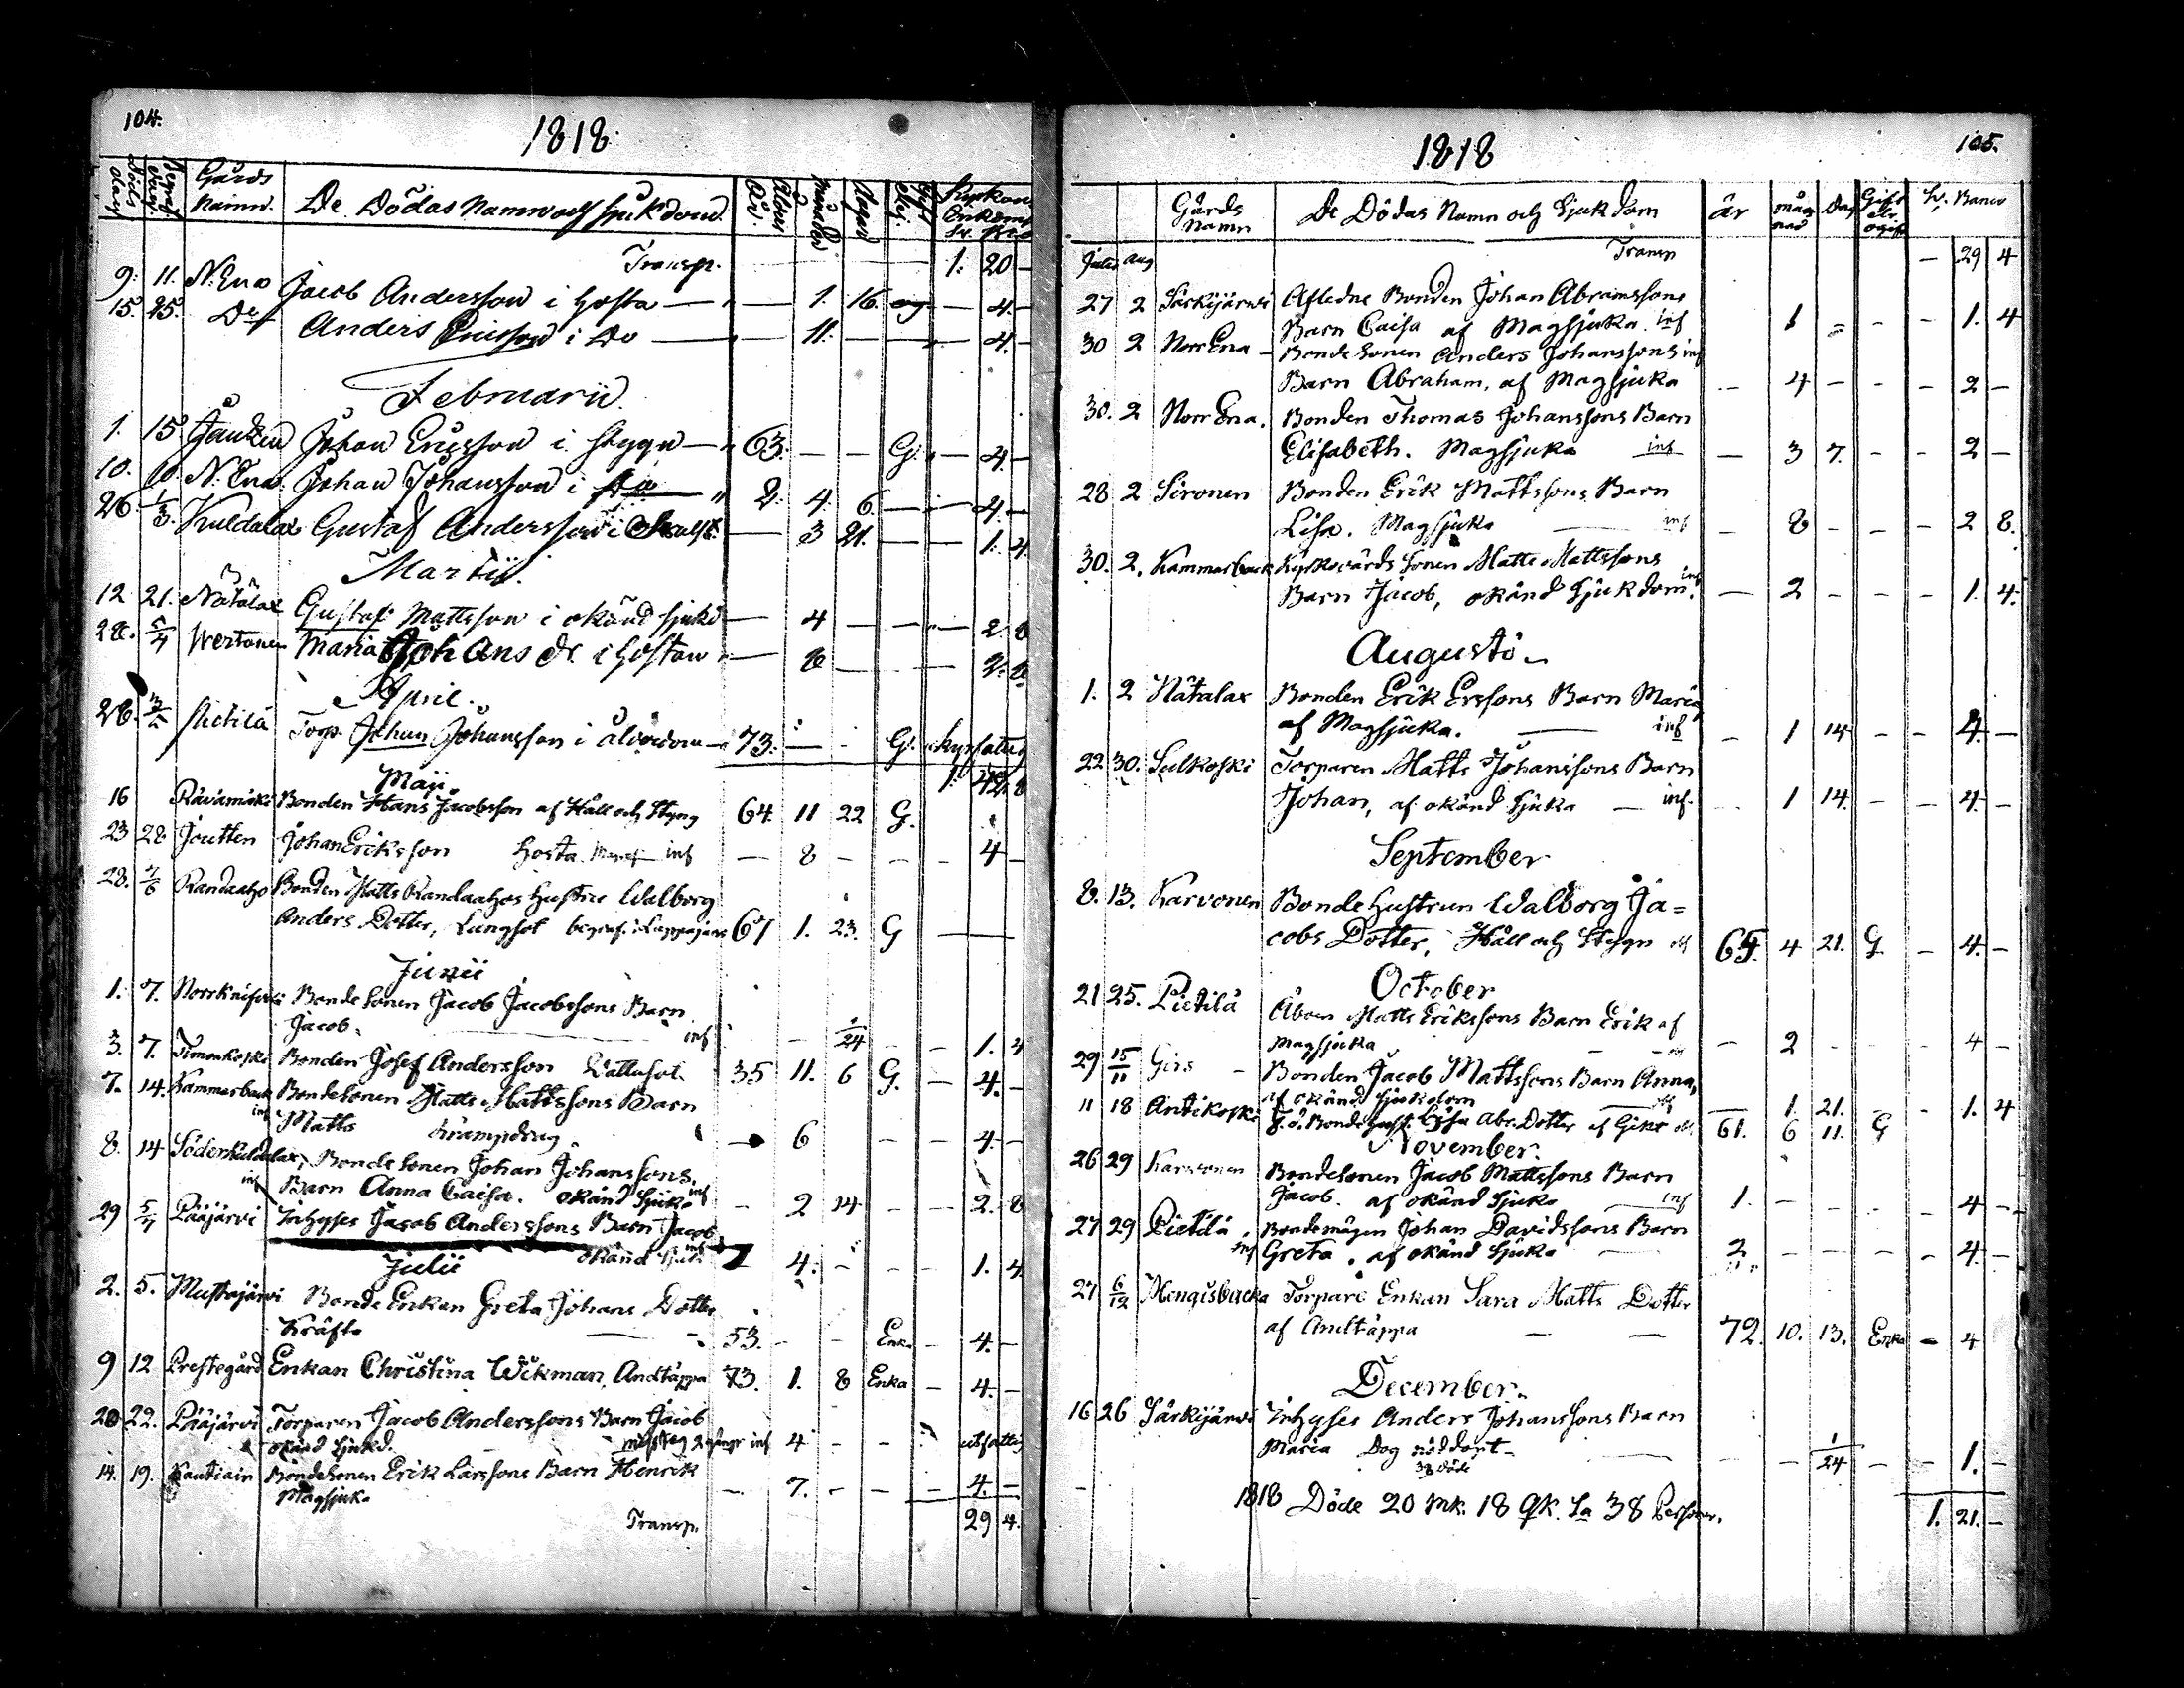 104.
1818.
Döds dag
Begrafn. dag
Gårds namn.
De Dödas Namn och Sjukdom.
Ålder
År.
Månader
Dagar
Gift Ogi.
Transp. 1: 20 —
9. 11. N. Ena Jacob Andersson i hosta — 1. 16. og — 4. —
15. 25. Do Anders Ericsson i Do — 11. — — 4. —
Februarii.
1. 15 Jautzen Johan Ericsson i stygn — 63. — — G. — 4. —
10. 10. N. Ena Johan Johansson i — 2. 4. 6. — 4. —
26. 1/3. Kuldalax Gustaf Andersson i — 3 21. — 1. 4.
Martii.
12 21. Nätälax Gustaf Mattsson i okänd sjukd — 4 — — 2 8
28. 5/4 Wertanen Maria Johans dr. i hostan — 8 — — 2. 8.
April.
28. Pietilä Torp. Johan Johansson i ålderdom — 73. — — G.
1. 12. 8
Maji
16 Räivämäki Bonden Hans Jacobsson af Håll och Styng 64 11 22 G.
23 28 Joutten Johan Eriksson hosta inf — 8 — — — 4 —
28. 7/6 Kandaaho Bonden Matts Kandaahos hustru Walborg
Anders Dotter, Lungsot begraf. i Lappajärvi 67 1. 23. G —
Junii
1. 7. Norrknifsilä Bonde Sonen Jacob Jacobssons Barn
Jacob. — inf — 1/24 — — 1. 4
3. 7. Timonkoski Bonden Josef Andersson Wattusot 35 11. 6 G. — 4. —
7. 14. Kammarback Bondesonen Matts Mattssons Barn
inf Matts krampdrag. — 6 — — 4. —
8. 14 Söderkuldalax, Bonde Sonen Johan Johanssons,
inf Barn Anna Caisa. okänd Sjuk. inf — 2 14 — — 2. 8
29 5/7 Pääjärvi Inhyses Jacob Anderssons Barn Jacob
okänd sjuk. inf 4. — — — 1. 4
Julii
2. 5. Mustajärvi Bonde Enkan Greta Johans Dotter
Kräfta — 53. — — Enk. — 4. —
9 12 Prestegård Enkan Christina Wikman, Andtäppa 73. 1. 8 Enka — 4. —
20 22. Pääjärvi Torparen Jacob Anderssons Barn Jacob
okänd sjukd. inf 4 — — utfattig
14. 19. Kautiain Bondesonen Erik Larssons Barn Henrik
Magsjuk. — 7. — — — 4. —
Transp. 29 4.
1818
105.
Gårds Namn
De Dödas Namn och Sjukdom
år
månad
Dag
Gift elr. ogift
Sv. Banco
Julii Aug Transp — 29 4
27 2 Särkijärvi Afledne Bonden Johan Abramssons
Barn Caisa af Magsjuka. inf 1 — — — 1. 4
30 2 Norr Ena — Bonde Sonen Anders Johanssons inf
Barn Abraham, af Magsjuka — 4 — — — 2 —
30. 2 Norr Ena. Bonden Thomas Johanssons Barn
Elisabeth. Magsjuka inf — 3 7. — — 2 —
28 2 Sironen Bonden Erik Mattssons Barn
Lisa. Magsjuka — inf — 8 — — — 2 8.
30. 2. Kammarback Kyrkovärds Sonen Matts Mattssons
Barn Jacob, okänd Sjukdom. inf — 2 — — — 1. 4.
Augusti
1. 2 Nätalax Bonden Erik Erssons Barn Maria
af Magsjuka. — inf — 1 14 — — 4. —
22 30. Sulkoski Torparen Matts Johanssons Barn
Johan, af okänd Sjuka — inf. — 1 14. — — 4. —
September
8. 13. Karvonen Bonde hustrun Walborg Ja=
cobs Dotter, Håll och Stygn 65. 4 21. G. — 4. —
October
21 25. Pietilä Åboen Matts Erikssons Barn Erik af
Magsjuka — 2 — — — 4 —
29 15/11 Girs — Bonden Jacob Mattssons Barn Anna,
af okänd Sjukdom — 1. 21. — — 1. 4
11 18 Antikoski F. d. Bonde hust. Lisa Abr. Dotter af Gikt 61. 6 11. G
November.
26 29 Karvonen Bondesonen Jacob Mattssons Barn
Jacob. af okänd Sjuka inf 1. — — — — 4 —
27 29 Pietilä Bondemågen Johan Davidssons Barn
inf Greta. af okänd Sjuka — 2 — — — — 4. —
27 6/12 Mengisbacka Torpare Enkan Sara Matts Dotter
af Andtäppa — — 72. 10. 13. Enka — 4
December.
16 26 Särkijärvi Inhyses Anders Johanssons Barn
Maria Dog nöddöpt — — — 1/24 — — 1. —
38 Döde
1818 Döde 20 Mk. 18 Qk. Sa 38 Personer. 1. 21. —